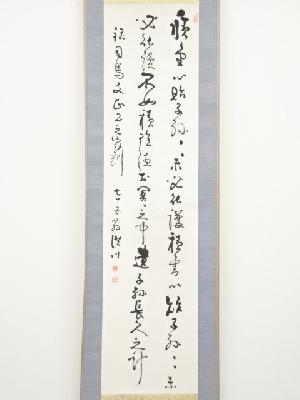 積金以貽子孫〻未必能護積書以貽子孫〻未
必能讀不如積陰德於冥〻之中遺子孫長久之計
録司馬文正公家訓 翁洪川